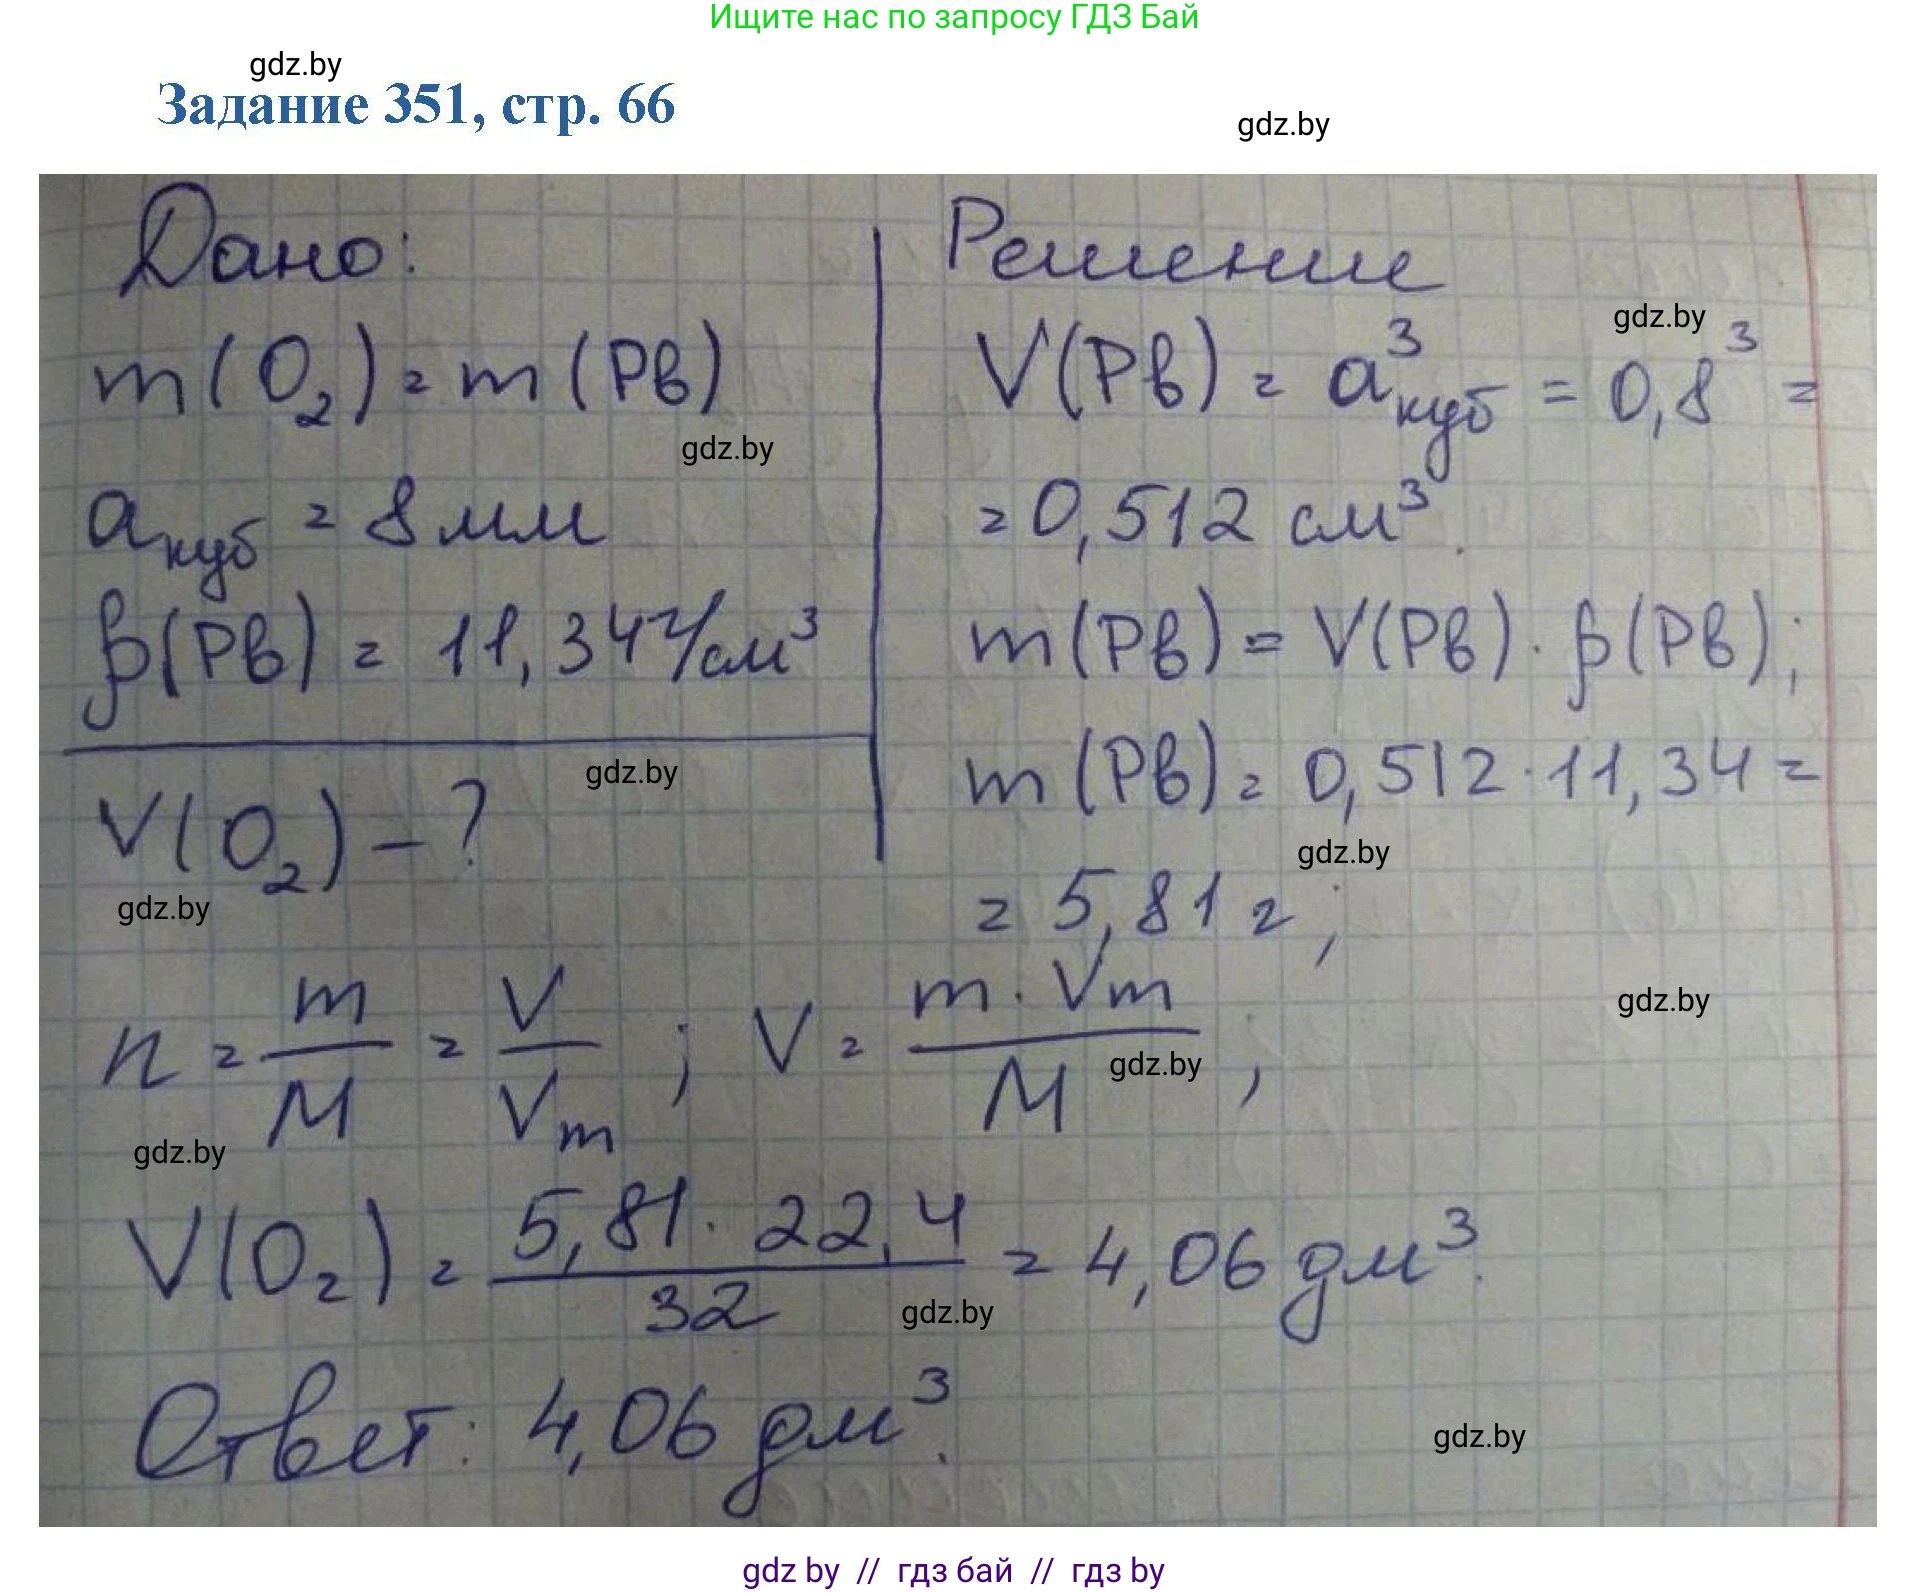 Ищите нас по запросу ГДЗ Бай
gdz.by
Задание 351, стр. 66
gdz.by
Дано:
m(O₂) = m(Pb)
gdz.by
a куб = 8 мм
ρ(Pb) = 11,34 г/см³
gdz.by
V(O₂) – ?
gdz.by
Решение
gdz.by
V(Pb) = a³куб = 0,8³ =
= 0,512 см³.
m(Pb) = V(Pb) · ρ(Pb);
m(Pb) = 0,512 · 11,34 =
gdz.by
= 5,81 г;
gdz.by
n = m/M = V/Vm ; V = m · Vm/M ,
gdz.by
gdz.by
V(O₂) = 5,81 · 22,4/32 = 4,06 дм³.
gdz.by
Ответ: 4,06 дм³.
gdz.by
gdz by // гдз бай // гдз by